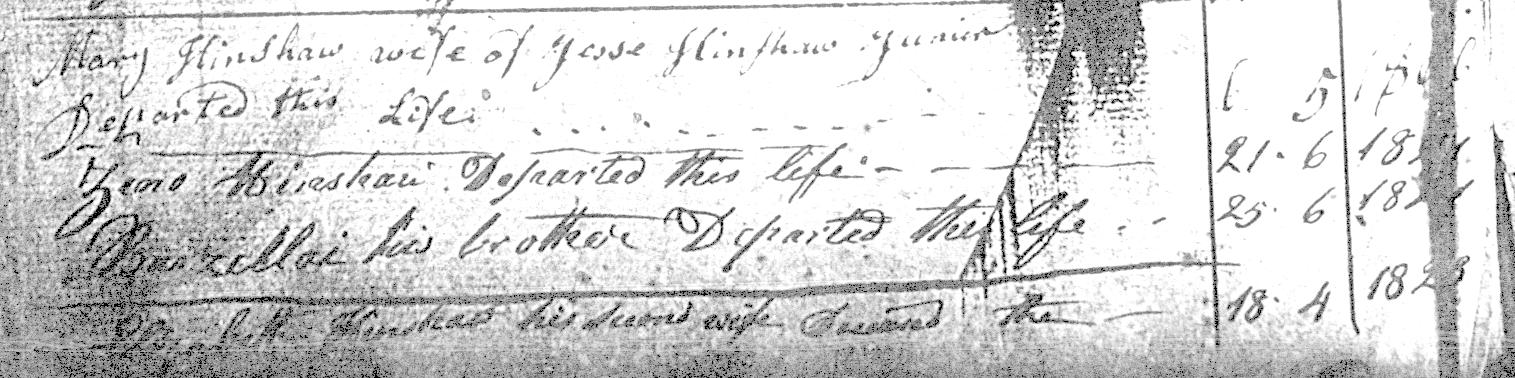 Mary Hinshaw wife of Jesse Hinshaw Junier
Departed this Life 6 5
Zeno Hinshaw Departed this life 21 . 6 1824
Barzillai his brother Departed this life 25 6 1824
Hinshaw his second wife Deceased the 18 . 4 1823